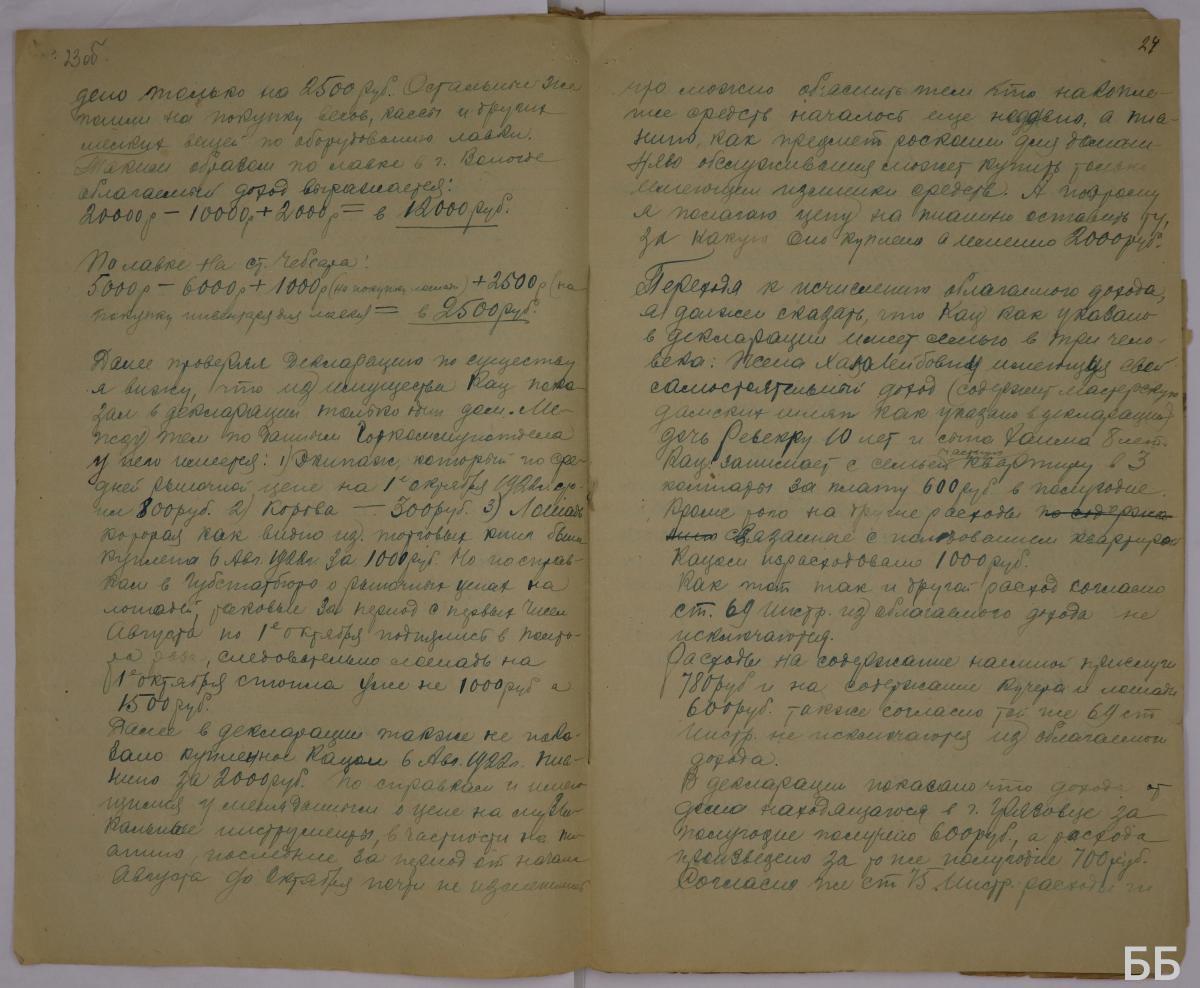 23 об.
дено только на 2500 руб. Остальные же
пошли на покупку весов, кассы и других
мелких вещей по оборудованию лавки.
Таким образом по лавке в г. Вологде
облагаемый доход выражается:
20000р – 10000р + 2000р = в 12000 руб.
По лавке на ст. Чебсара:
5000р – 6000р + 1000р (на покупку лошади) + 2500р (на
покупку инвентаря для лавки = в 2500 руб.
Далее проверяя декларацию по существу
я вижу, что из имущества Кац пока-
зал в декларации только один дом. Ме-
жду тем по данным Горкоммунотдела
у него имеется: 1) Экипаж, который по сре-
дней рыночной цене на 1е октября 1922г. сто-
ил 800 руб. 2) Корова — 300 руб. 3) Лошадь
которая как видно из торговых книг была
куплена 6 Авг. 1922г. за 1000 руб. Но по справ-
кам в Губстатбюро о рыночных ценах на
лошадей, таковые за период с первых чисел
Августа по 1е октября поднялись в полто-
ра раза, следовательно лошадь на
1е октября стоила уже не 1000 руб а
1500 руб.
Далее в декларации также не пока-
зано купленное Кацом 6 Авг. 1922г. пиа-
нино за 2000 руб. По справкам и имею-
щимся у меня данным о цене на музы-
кальные инструменты, в частности на пи-
анино, последние за период от начала
Августа до Октября почти не изменились
24
что можно объяснить тем что накопле-
ние средств началось еще недавно, а пиа-
нино, как предмет роскоши для домаш-
няго обслуживания может купить только
имеющий излишки средств. А поэтому
я полагаю цену на пианино оставить ту,
за какую оно куплено а именно 2000 руб.
Переходя к исчислению облагаемого дохода,
я должен сказать, что Кац как указано
в декларации имеет семью в три чело-
века: Жена Хана Лейбовна имеющая свой
самостоятельный доход (содержит мастерскую
дамских шляп как указано в декларации)
дочь Ревекку 10 лет и сына Хаима 8 лет.
Кац занимает с семьей частную квартиру в 3
комнаты за плату 600 руб. в полугодие.
Кроме того на другие расходы по содержа-
нию связанные с пользованием квартирой
Кацом израсходовано 1000 руб.
Как тот так и другой расход согласно
ст. 69 Инстр. из облагаемого дохода не
исключаются.
Расходы на содержание наемной прислуги
780 руб и на содержание кучера и лошади
600 руб. также согласно той же 69 ст
Инстр. не исключаются из облагаемого
дохода.
В декларации показано что дохода от
дома находящагося в г. Грязовце за
полугодие получено 600 руб, а расхода
произведено за то же полугодие 700 руб.
Согласно же ст 75 Инстр. расходы по
ББ